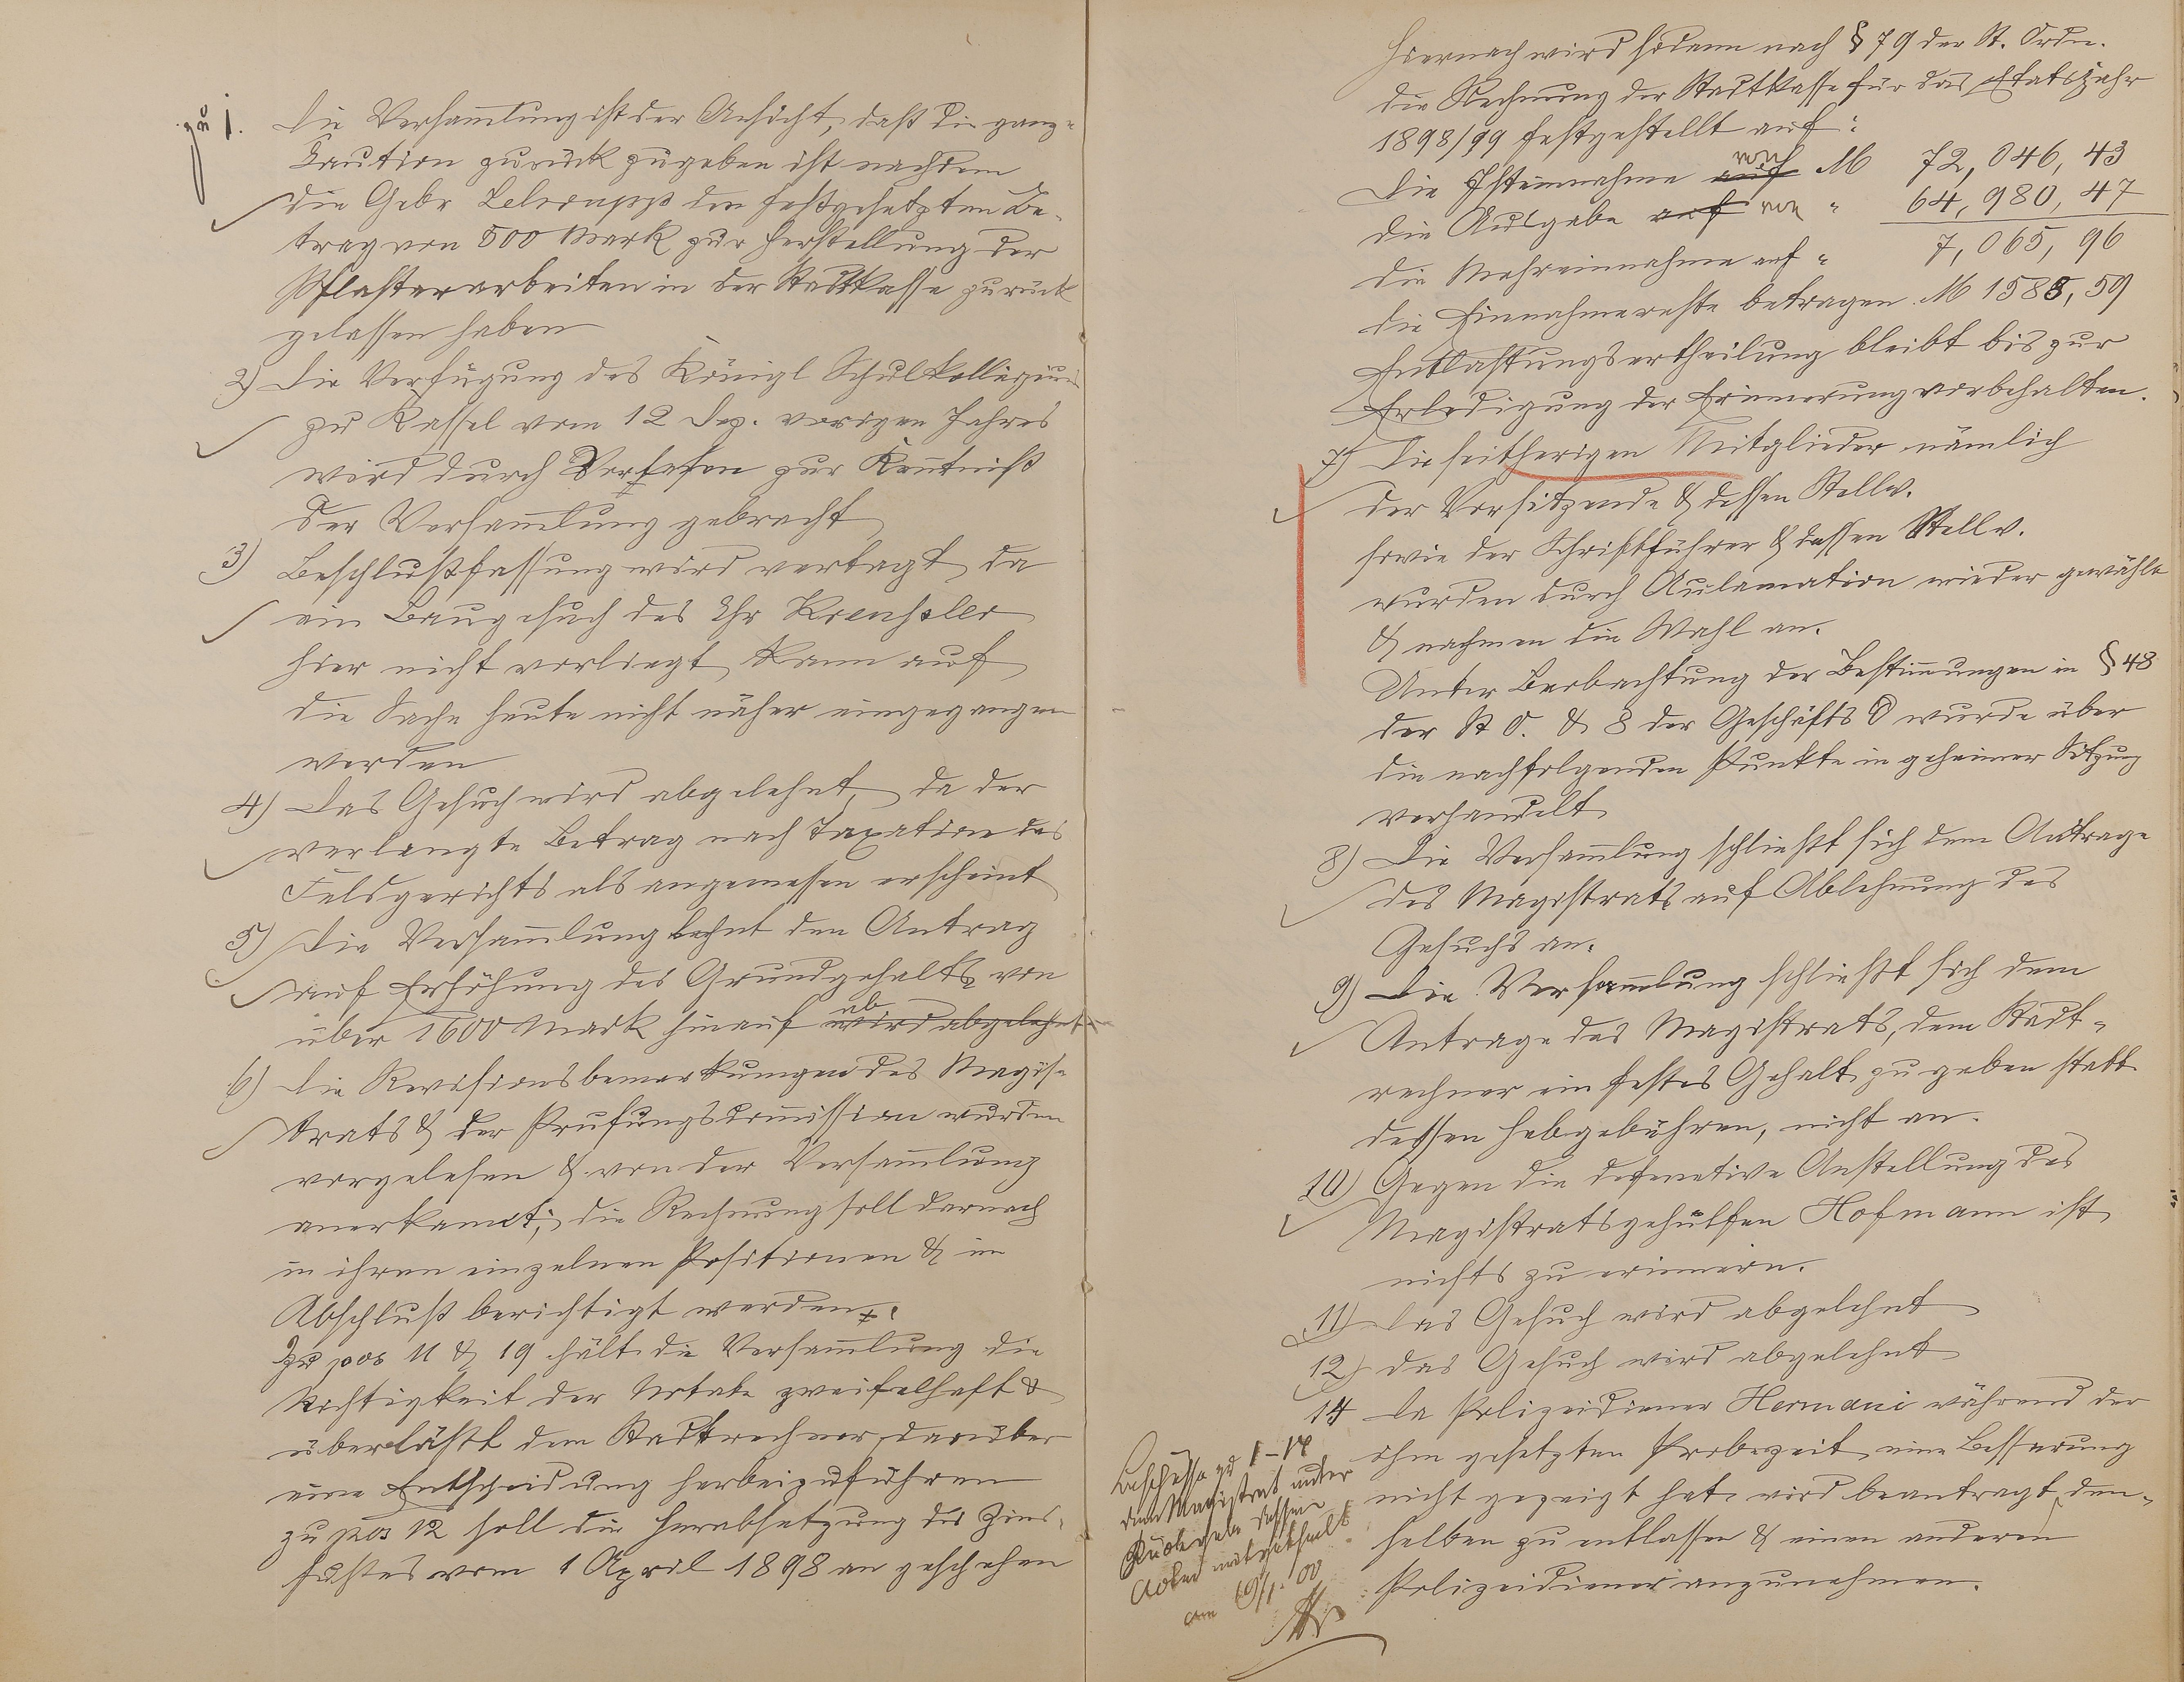 zu 1. Die Versam̄lung ist der Ansicht, daß die ganze
Caution zurück zugeben ist nachdem
die Gebr den festgesetzten Be-
trag von 500 Mark zur Herstellung der
Pflasterarbeiten in der Stadtkasse zurück
gelassen haben
2) Die Verfügung des Königl Schulkollegiums
zu Kassel vom 12 Dez. vorigen Jahres
wird durch Verlesen zur Ken̄tniß
der Versam̄lung gebracht
3) Beschlußfassung wird vertagt, da
ein Baugesuch des Chr
hier nicht vorliegt, kann auf
die Sache heute nicht näher eingegangen
werden
4) Das Gesuch wird abgelehnt, da der
verlangte Betrag nach Taxation des
Feldgerichts als angemessen erscheint
5) Die Versam̄lung lehnt den Antrag
auf Erhöhung des Grundgehalts von
ab
über 1600 Mark hinauf wird abgelehnt
6) Die Revisionsbemerkungen des Magis-
trats & der Prüfungscom̄ission wurden
vorgelesen & von der Versam̄lung
anerkannt; die Rechnung soll darnach
in ihren einzelnen Positionen & im
Abschluß berichtigt werden.
Zu pos 11 & 19 hält die Versam̄lung die
Richtigkeit der Notate zweifelhaft &
überläßt dem Stadtrechner, darüber
eine Entscheidung herbeizuführen
zu pos 12 soll die Herabsetzung des Zins-
fußes vom 1 April 1898 an geschehen
Hiernach wird sodann nach § 79 der St. Ordn.
die Rechnung der Stadtkasse für das Etatsjahr
1898/99 festgestellt auf:
Die Isteinnahme auf von M 72,046,43
die Ausgabe auf von " 64,980,47
die Mehreinnahme auf " 7,065,96
die Einnahmereste betragen M 1585,59
Entlastungsertheilung bleibt bis zur
Erledigung der Erinnerung vorbehalten.
7) Die seitherigen Mitglieder nämlich
der Vorsitzende & dessen Stellv.
sowie der Schriftführer & dessen Stellv.
wurden durch Aulamation wieder gewählt
& nahmen die Wahl an.
Unter Beobachtung der Bestim̄ungen in § 48
der St O. & 8 der Geschäfts O wurde über
die nachfolgenden Punkte in geheimer Sitzung
verhandelt
8) Die Versam̄lung schließt sich dem Antrage
des Magistrats auf Ablehnung des
Gesuchs an.
9) Die Versam̄lung schließt sich dem
Antrage des Magistrats, dem Stadt-
rechner ein festes Gehalt zu geben statt
dessen Hebgebühren, nicht an.
10) Gegen die defenetive Anstellung des
Magistratsgehülfen Hofmann ist
nichts zu erinnern.
11) Das Gesuch wird abgelehnt
12) Das Gesuch wird abgelehnt
14 Da Polizeidiener Hermani während der
ihm gesetzten Probezeit eine Besserung
nicht gezeigt hat, wird beantragt, den-
selben zu entlassen & einen anderen
Polizeidiener anzunehmen.
Beschlüsse zu 1-14
dem Magistrat unter
Rückgabe dessen
Akten mitgetheilt
am 19/1. 00